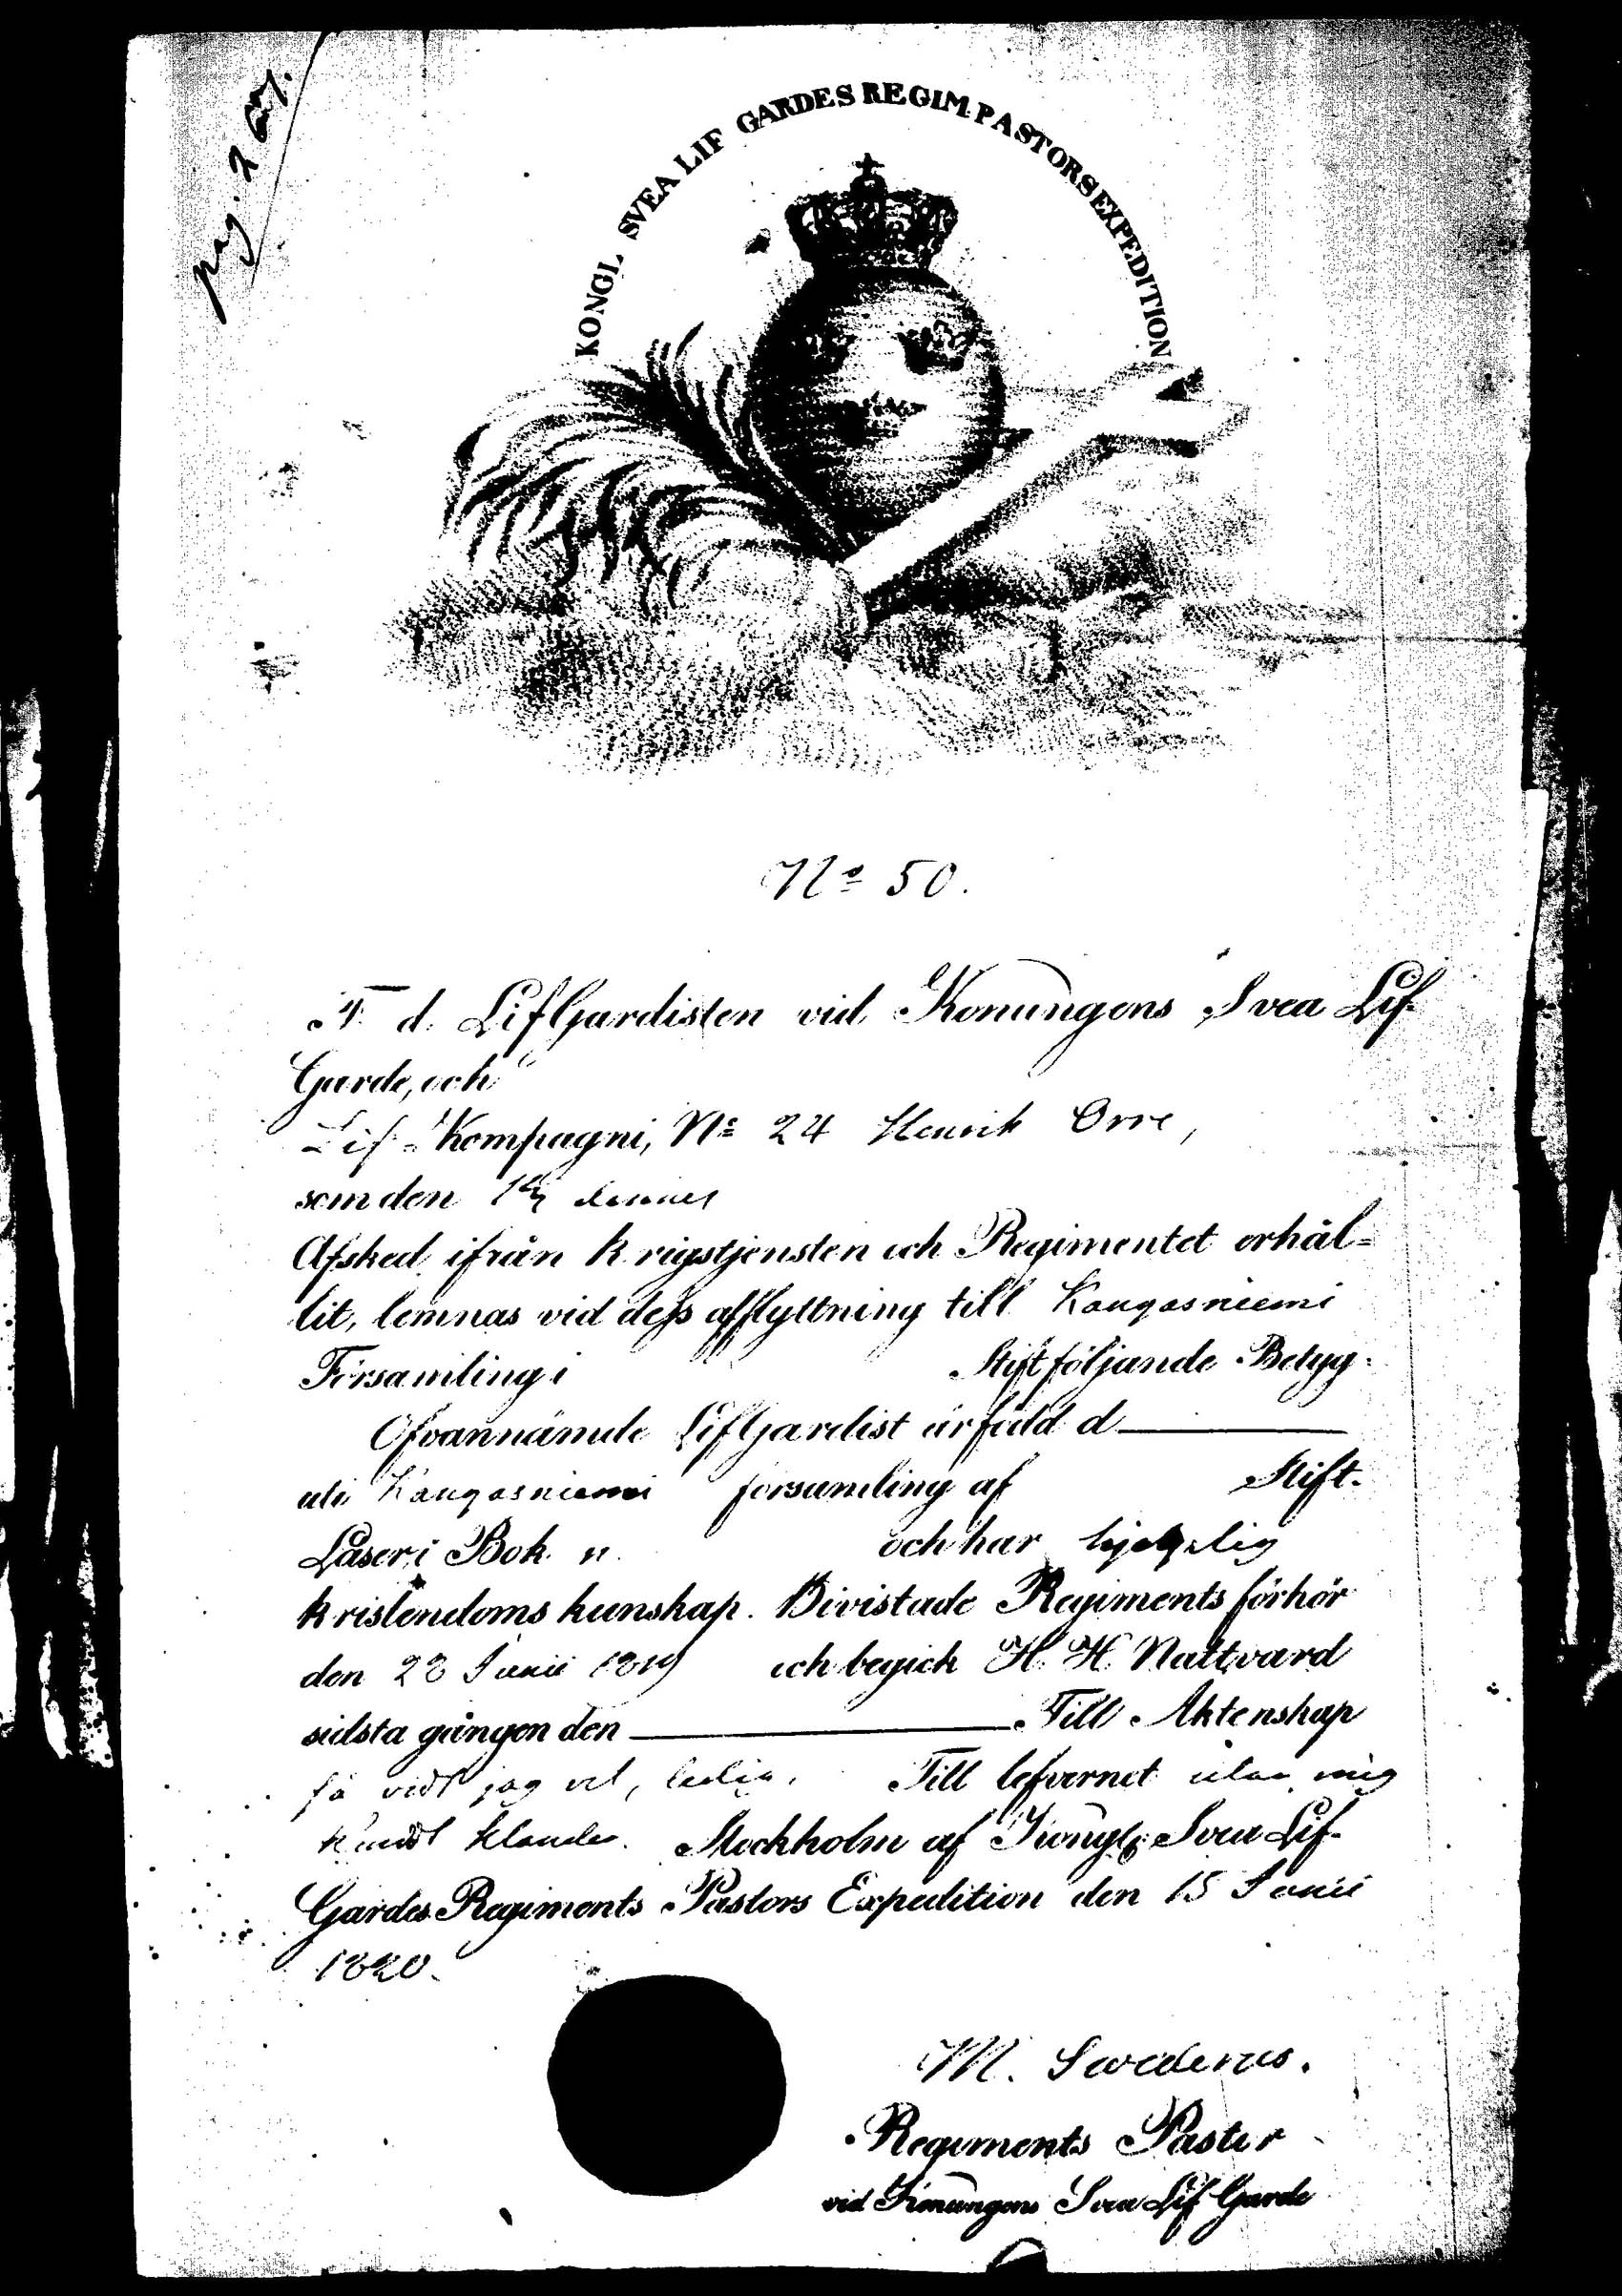 pag. 2
KONGL SVEA LIF GARDES REGIM. PASTORSEXPEDITION
No 50.
F. d. LifGardisten vid Konungens Svea Lif-
Garde, och
Lif- Kompagni, No 24 Henrik Orre,
som den dennes
Afsked ifrån krigstjensten och Regimentet erhål=
lit, lemnas vid dess afflyttning till Kangasniemi
Församling i Stift följande Betyg.
Ofvannämnde LifGardist är född d
uti Kangasniemi församling af Stift.
Läser i Bok n och har hjelplig
kristendoms kunskap. Bivistade Regiments förhör
den 28 Junii 1819 och begick H. H. Nattvard
sidsta gången den Till Äktenskap
så vidt jag vet, ledig. Till lefvernet utan mig
kundt klander. Stockholm af Kongl. Svea Lif-
Gardes Regiments Pastors Expedition den 15 Junii
1820.
M. Swederus.
Regiments Pastor
vid Konungens Svea Lif Garde